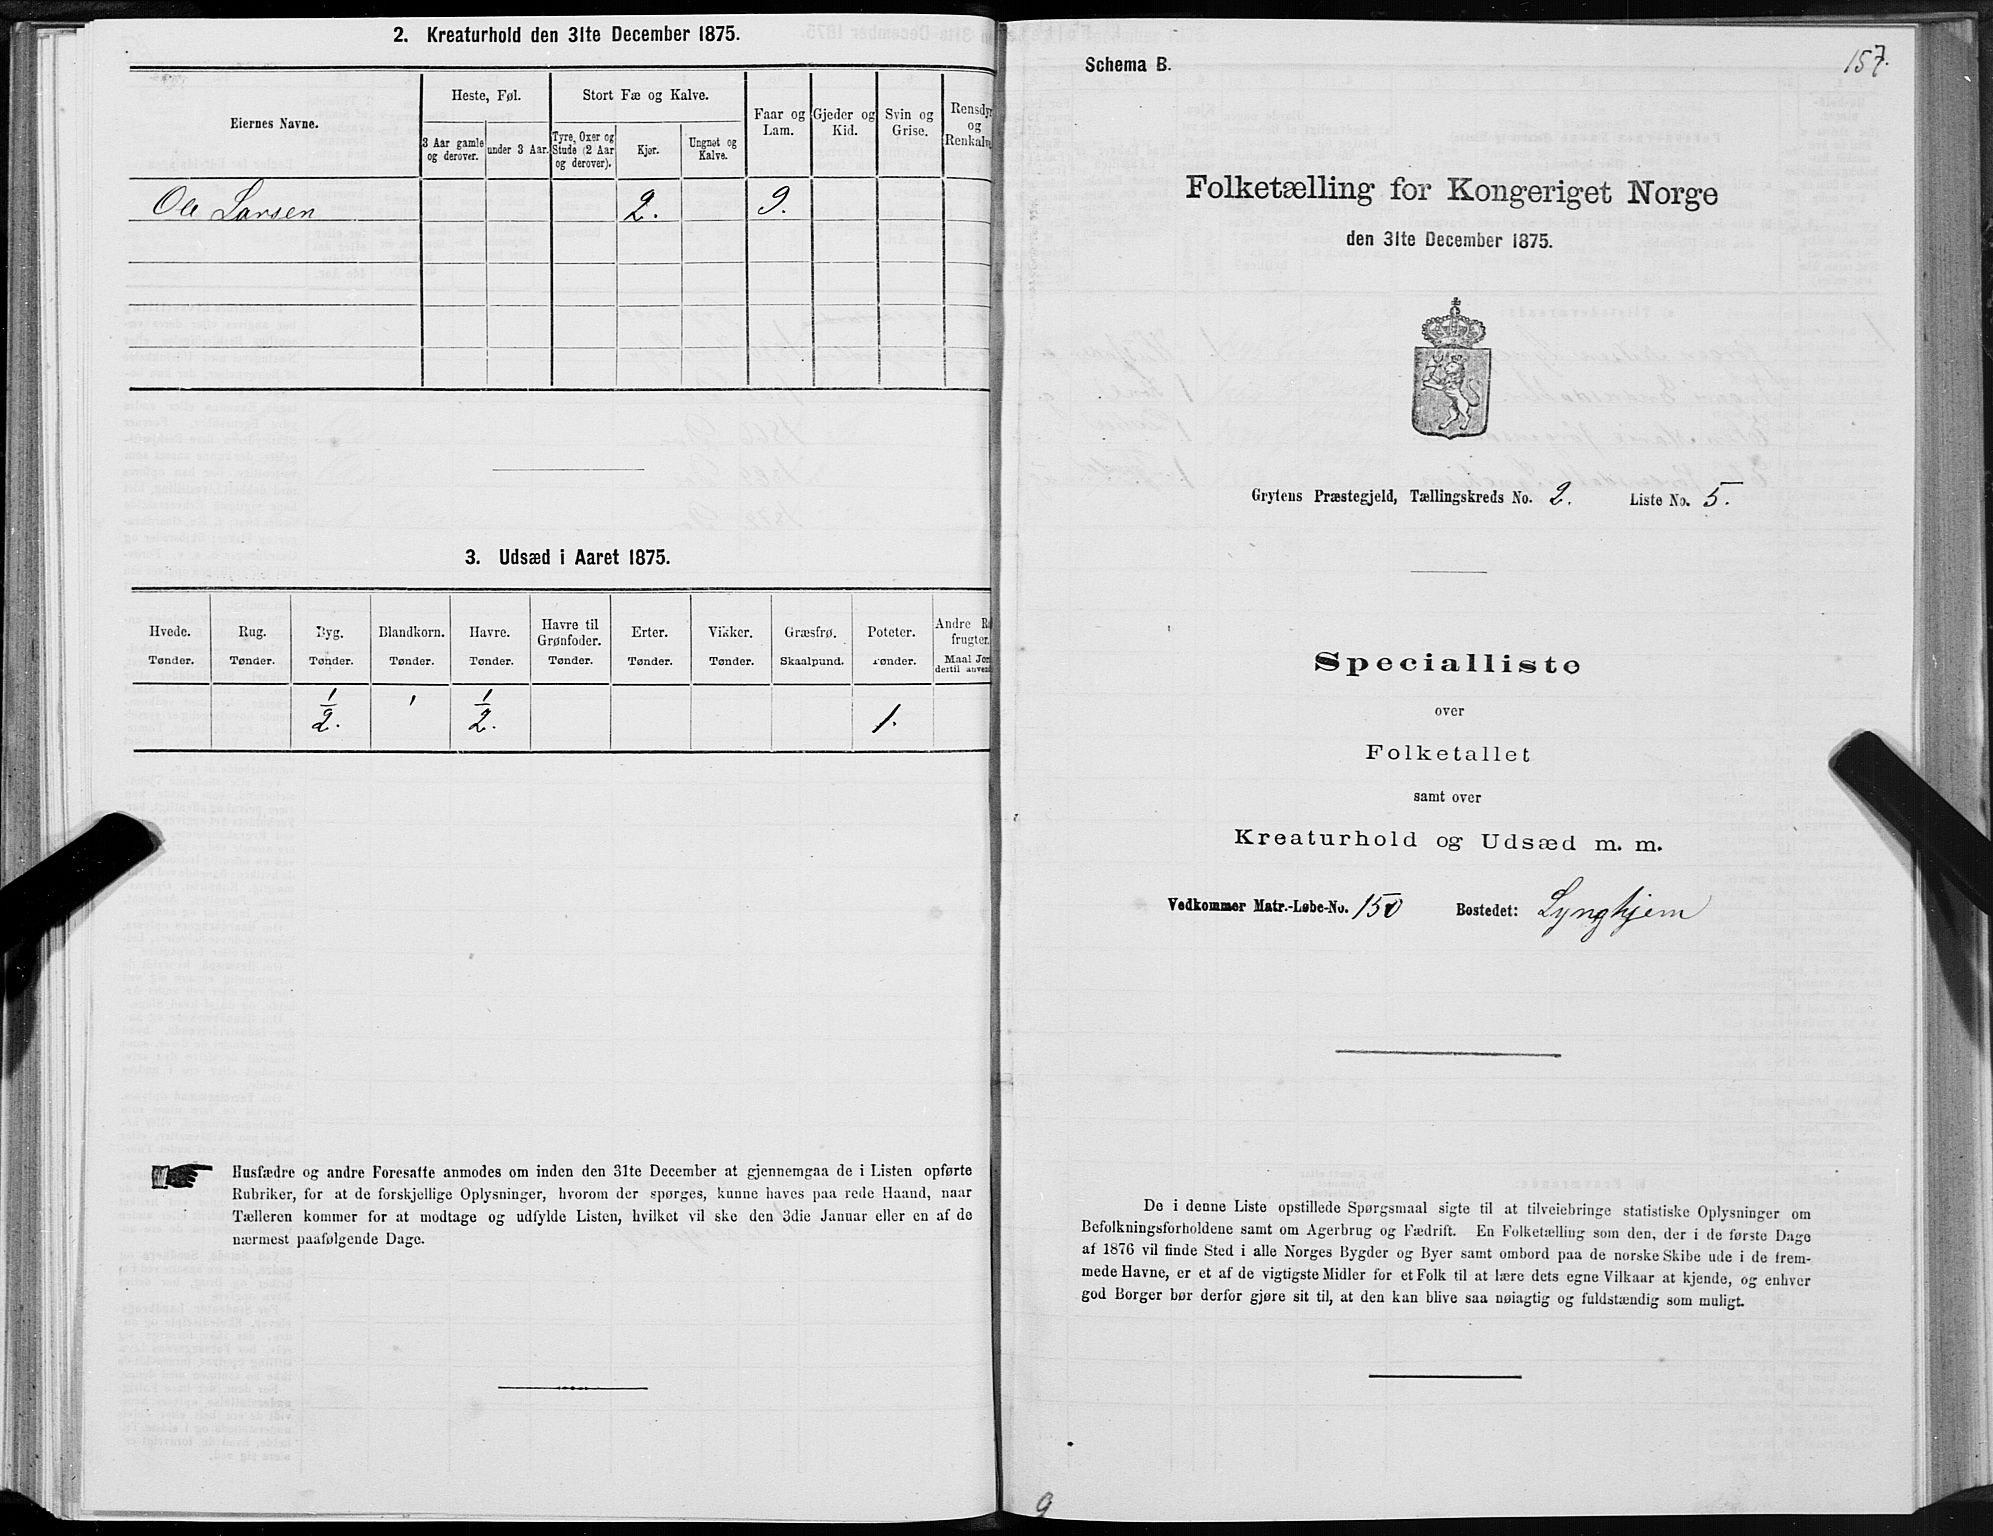 2. Kreaturhold den 31te December 1875.
Eiernes Navne.
Heste, Føl.
Stort Fæ og Kalve.
Faar og Lam.
Gjeder og Kid.
Svin og Grise.
Rensdyr og Renkalve
3 Aar gamle og derover.
under 3 Aar.
Tyre, Oxer og Stude (2 Aar og derover).
Kjør.
Ungnøt og Kalve.
Ole Larsen 2. 9.
3. Udsæd i Aaret 1875.
Hvede. Rug. Byg. Blandkorn. Havre. Havre til Grønfoder. Erter. Vikker. Græsfrø. Poteter. Andre
frugter.
Tønder. Tønder. Tønder. Tønder. Tønder. Tønder. Tønder. Tønder. Skaalpund. Tønder. Maal
dertil
1/2. 1/2. 1.
Husfædre og andre Foresatte anmodes om inden den 31te December at gjennemgaa de i Listen opførte
Rubriker, for at de forskjellige Oplysninger, hvorom der spørges, kunne haves paa rede Haand, naar
Tælleren kommer for at modtage og udfylde Listen, hvilket vil ske den 3die Januar eller en af de
nærmest paafølgende Dage.
Schema B.
157.
Folketælling for Kongeriget Norge
den 31te December 1875.
Grytens Præstegjeld, Tællingskreds No. 2. Liste No. 5.
Specialliste
over
Folketallet
samt over
Kreaturhold og Udsæd m. m.
Vedkommer Matr.-Løbe-No. 150 Bostedet: Lynghjem
De i denne Liste opstillede Spørgsmaal sigte til at tilveiebringe statistiske Oplysninger om
Befolkningsforholdene samt om Agerbrug og Fædrift. En Folketælling som den, der i de første Dage
af 1876 vil finde Sted i alle Norges Bygder og Byer samt ombord paa de norske Skibe ude i de frem-
mede Havne, er et af de vigtigste Midler for et Folk til at lære dets egne Vilkaar at kjende, og enhver
god Borger bør derfor gjøre sit til, at den kan blive saa nøiagtig og fuldstændig som muligt.
9